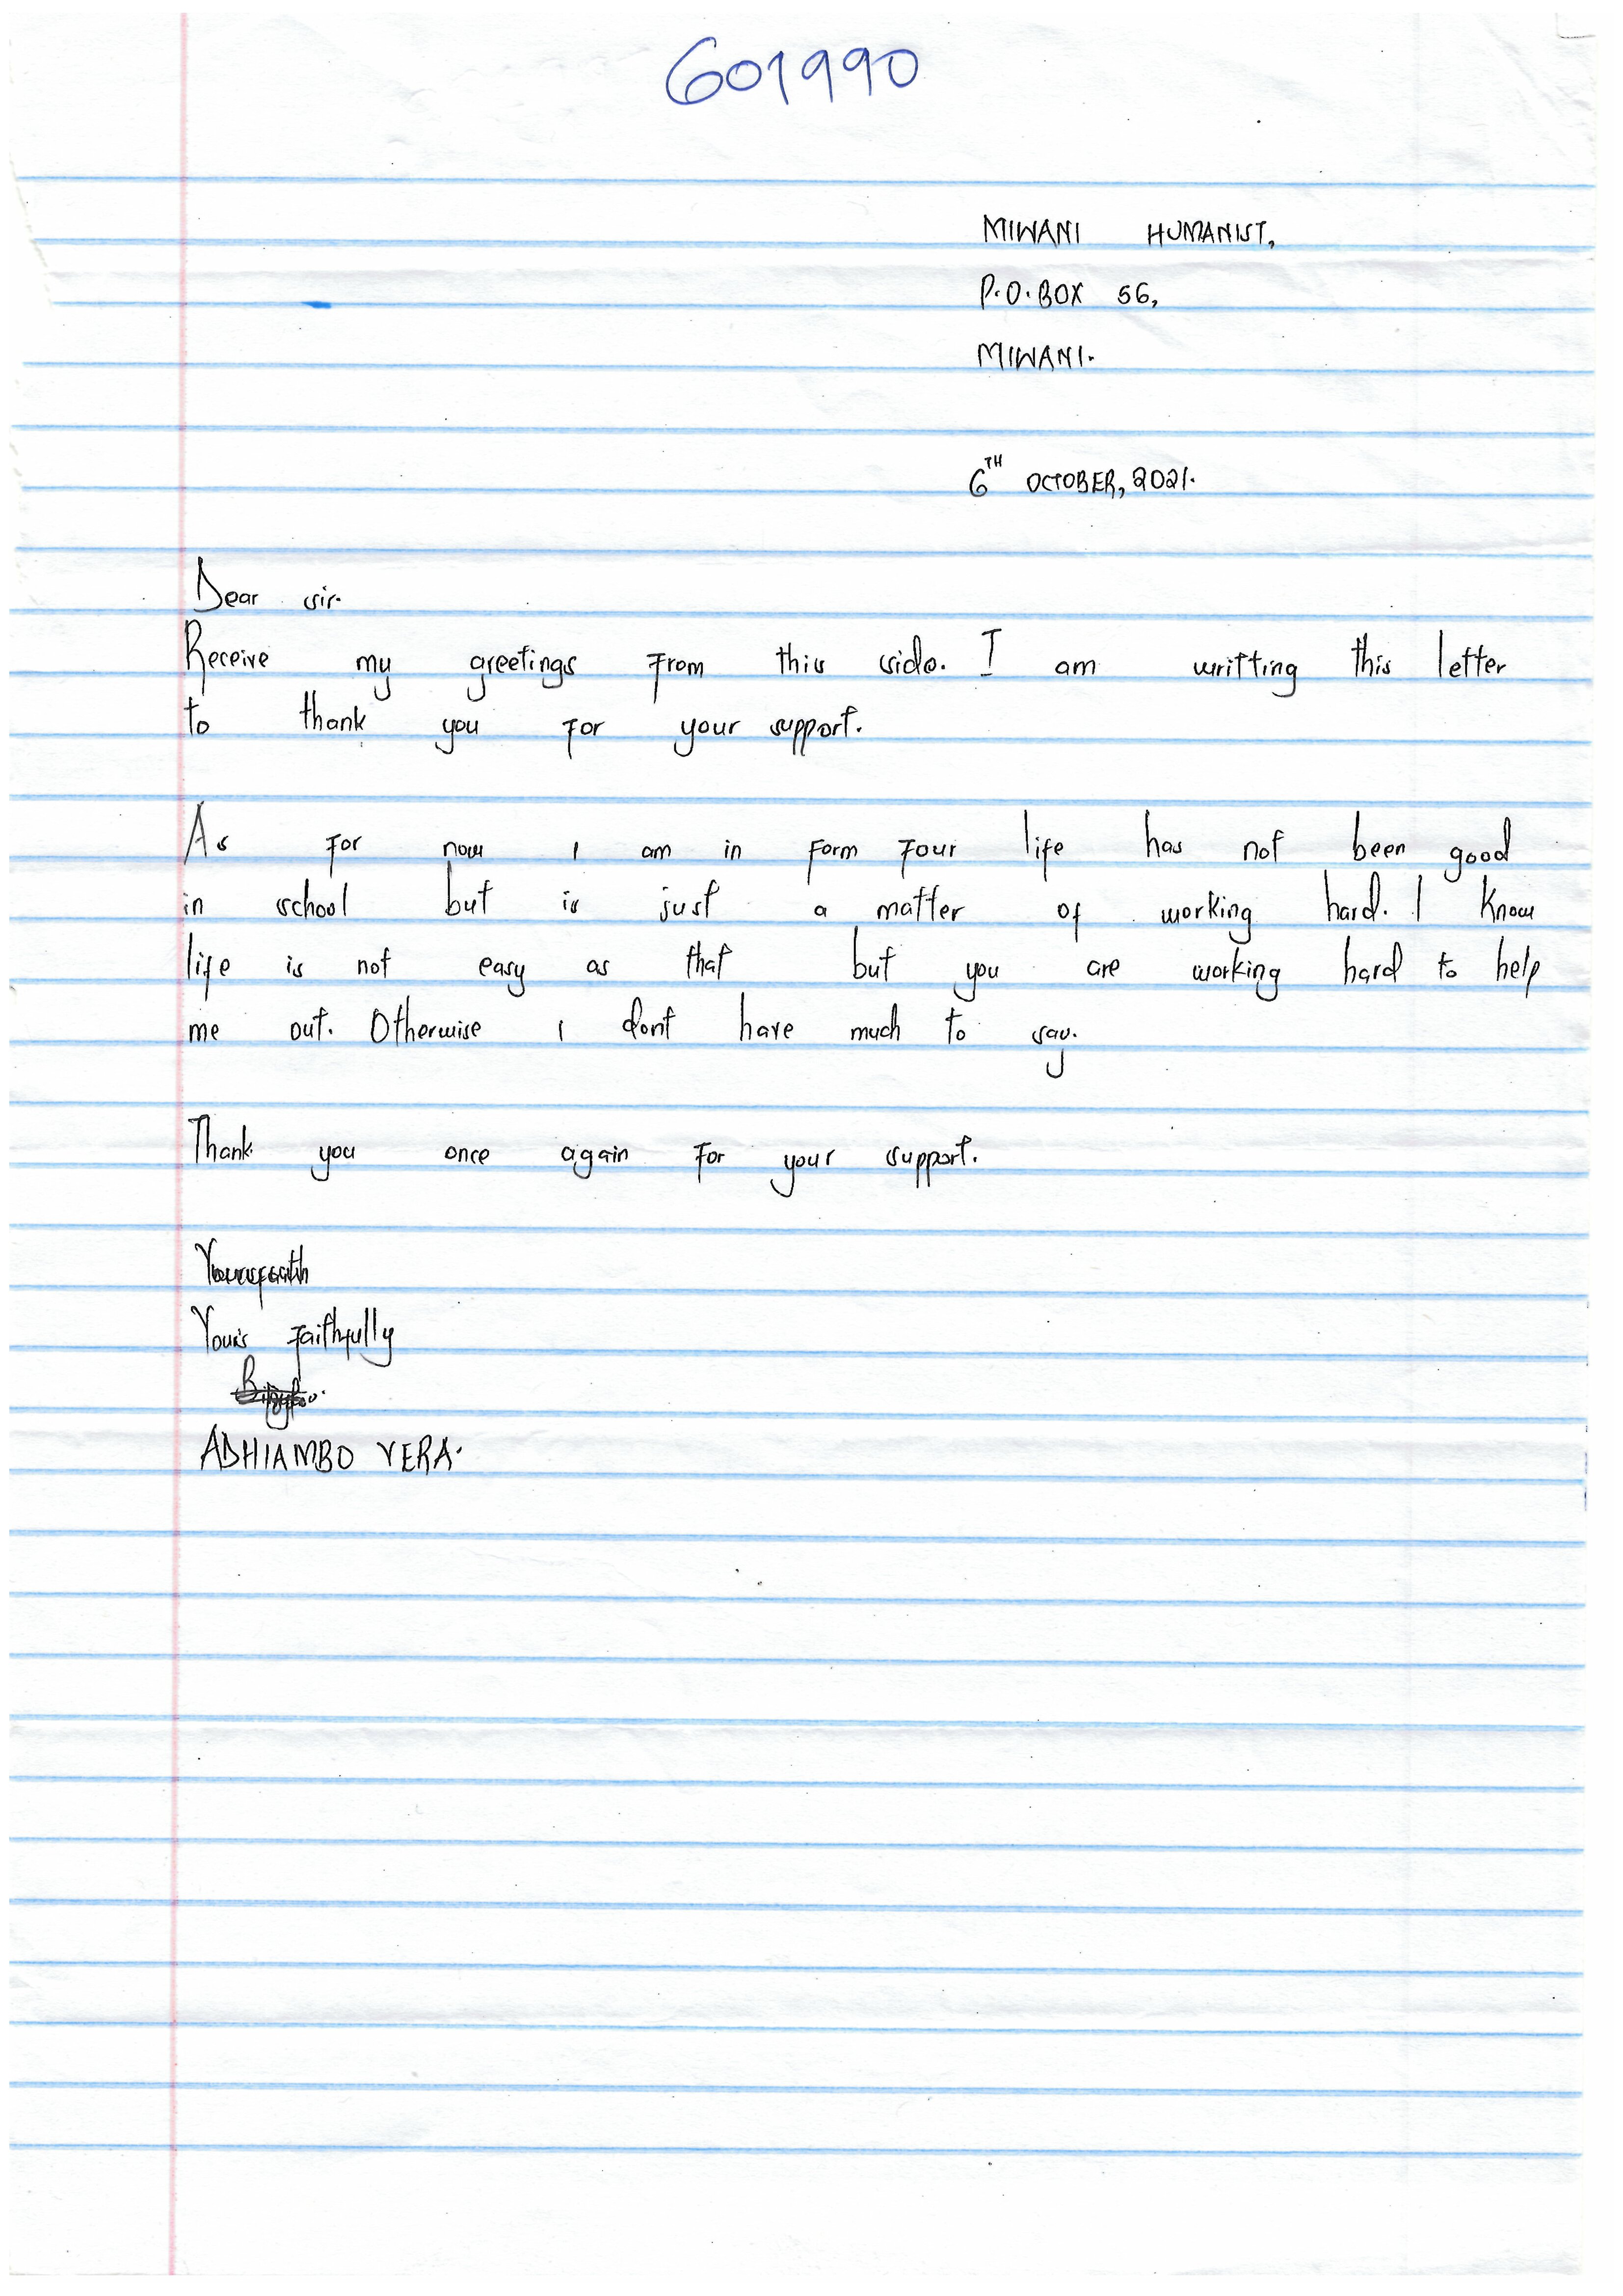 601990
MIWANI HUMANIST,
P.O.BOX 56,
MIWANI.
6TH OCTOBER, 2021.
Dear sir.
Receive my greetings from this side. I am writting this letter
to thank you for your support.
As for now I am in form four life has not been good
in school but is just a matter of working hard. I know
life is not easy as that but you are working hard to help
me out. Otherwise I dont have much to say.
Thank you once again for your support.
Yours faithfully
ADHIAMBO VERA.